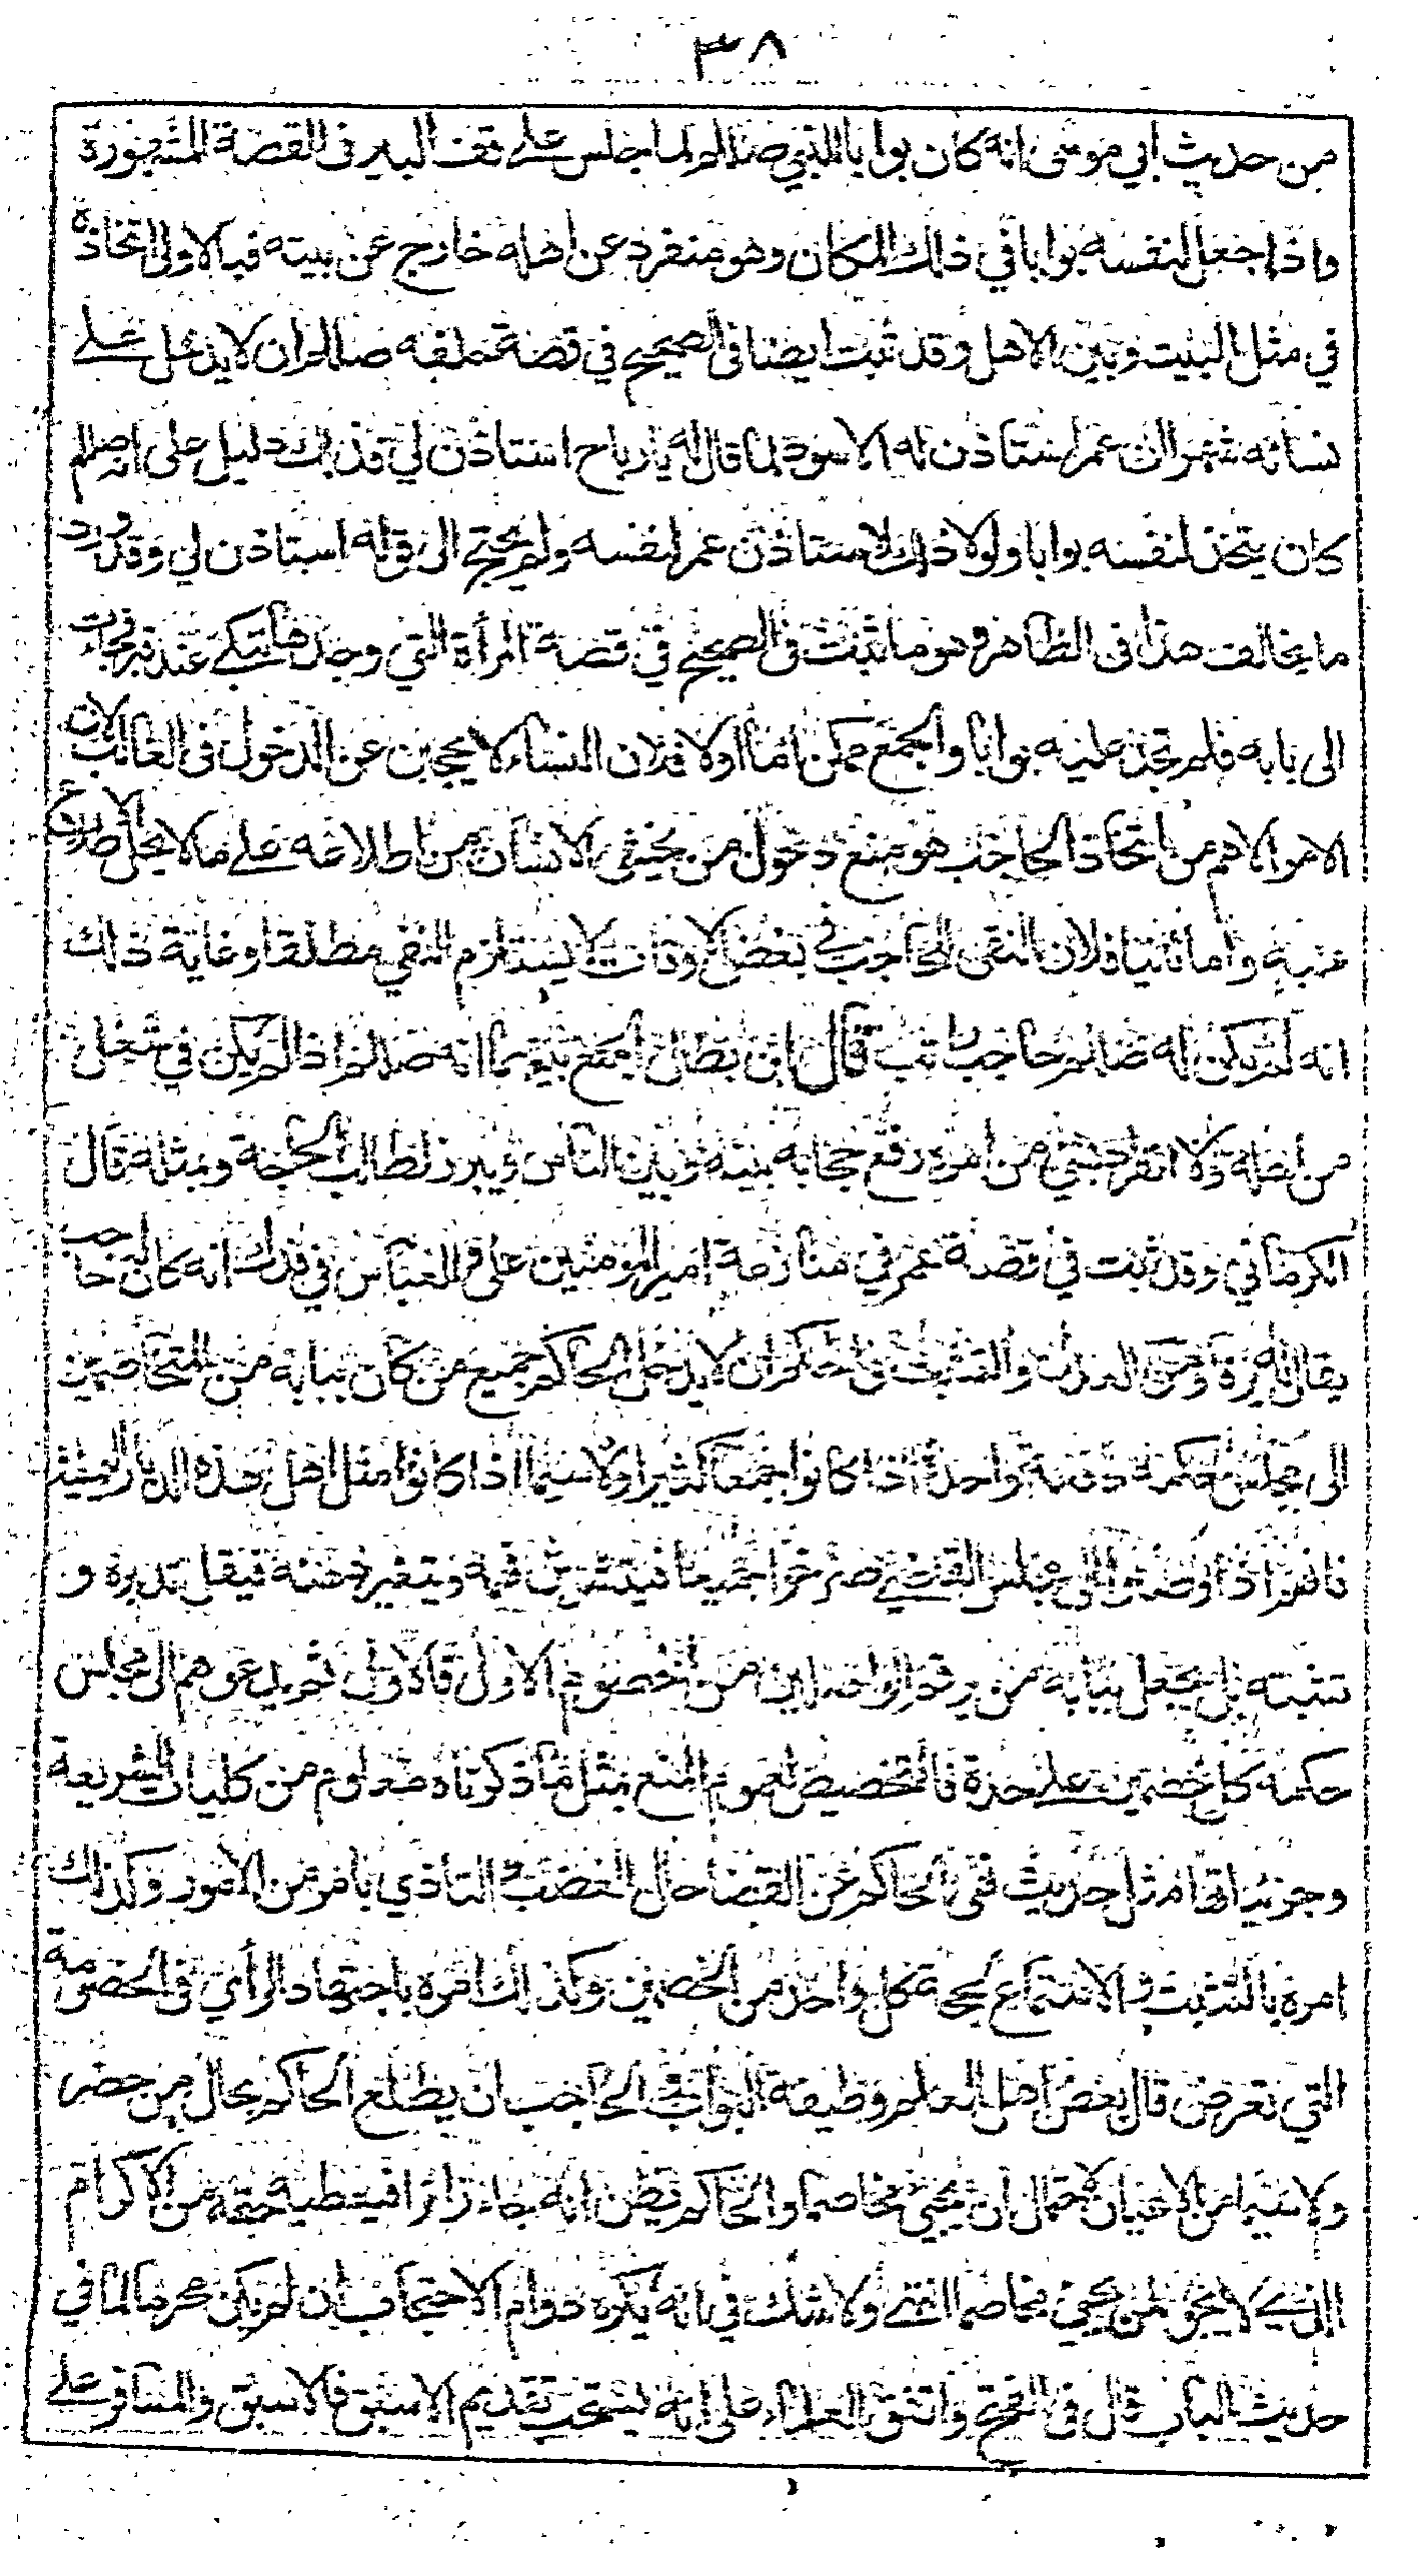 ٣٨
من حديث أبي موسى انه كان بوابا للنبي صللم لما جلس على قف البير في القصة المشهورة
واذا جعل لنفسه بوابا في ذلك المكان وهو منفرد عن اهله خارج عن بيته فبالاولى اتخاذه
في مثل البيت وبين الاهل وقد ثبت ايضا في الصحيح في قصة حلفه صللم ان لا يدخل على
نسائه شهرا ان عمر استاذن له الاسود لما قال له يا رباح استاذن لي فذلك دليل على انه صللم
كان يتخذ لنفسه بوابا ولولا ذلك لاستاذن عمر لنفسه ولم يحتج الى قوله استاذن لي وقد ورد
ما يخالف هذا في الظاهر وهو ما ثبت في الصحيح في قصة المرأة التي وجدها تبكي عند قبر فجاءت
الى بابه فلم تجد عليه بوابا والجمع ممكن اما اولا فلان النساء لا يحجبن عن الدخول في الغالب لان
الامر الاهم من اتخاذ الحاجب هو منع دخول من يخشى الانسان من اطلاعه على ما لا يحل الاطلاع
عليه واما ثانيا فلان النفي للحاجب في بعض الاوقات لا يستلزم النفي مطلقا وغاية ذلك
انه لم يكن له صللم حاجب راتب قال ابن بطال الجمع بينهما انه صللم اذا لم يكن في شغل
من اهله ولا انفراد بشيء من امره رفع حجابه بينه وبين الناس ويبرز لطالب الحاجة وبمثله قال
الكرماني وقد ثبت في قصة عمر في منازعة امير المؤمنين علي والعباس في فدك انه كان له حاجب
يقال له يرفا ومن العدل والتثبت في الحكم ان لا يدخل الحاكم جميع من كان ببابه من المتخاصمين
الى مجلس حكمه دفعة واحدة اذا كانوا جمعا كثيرا ولا سيما اذا كانوا مثل اهل هذه الديار اليمنية
فانهم اذا وصلوا الى مجلس القاضي صرخوا جميعا فيتشوش فهمه ويتغير ذهنه فيقل تدبره و
تثبته بل يجعل ببابه من يرقم الواصلين من الخصوم الاول فالاول ثم يدعوهم الى مجلس
حكمه كل خصمين على حدة فالتخصيص لعموم المنع بمثل ما ذكرناه معلوم من كليات الشريعة
وجزئياتها مثل حديث نهي الحاكم عن القضا حال الغضب والتاذي بامر من الامور وكذلك
امره بالتثبت والاستماع لحجة كل واحد من الخصمين وكذلك امره باجتهاد الرأي في الخصومة
التي تعرض قال بعض اهل العلم وظيفة البواب والحاجب ان يطلع الحاكم بحال من حضر
ولا سيما من الاعيان لاحتمال ان يجيء مخاصما والحاكم يظن انه جاء زائرا فيعطيه حقه من الاكرام
الذي لا يجوز لمن يجيء مخاصما انتهى ولا شك في انه يكره دوام الاحتجاب ان لم يكن محرما لما في
حديث الباب قال في الفتح واتفق العلماء على انه يستحب تقديم الاسبق فالاسبق والمسافر على